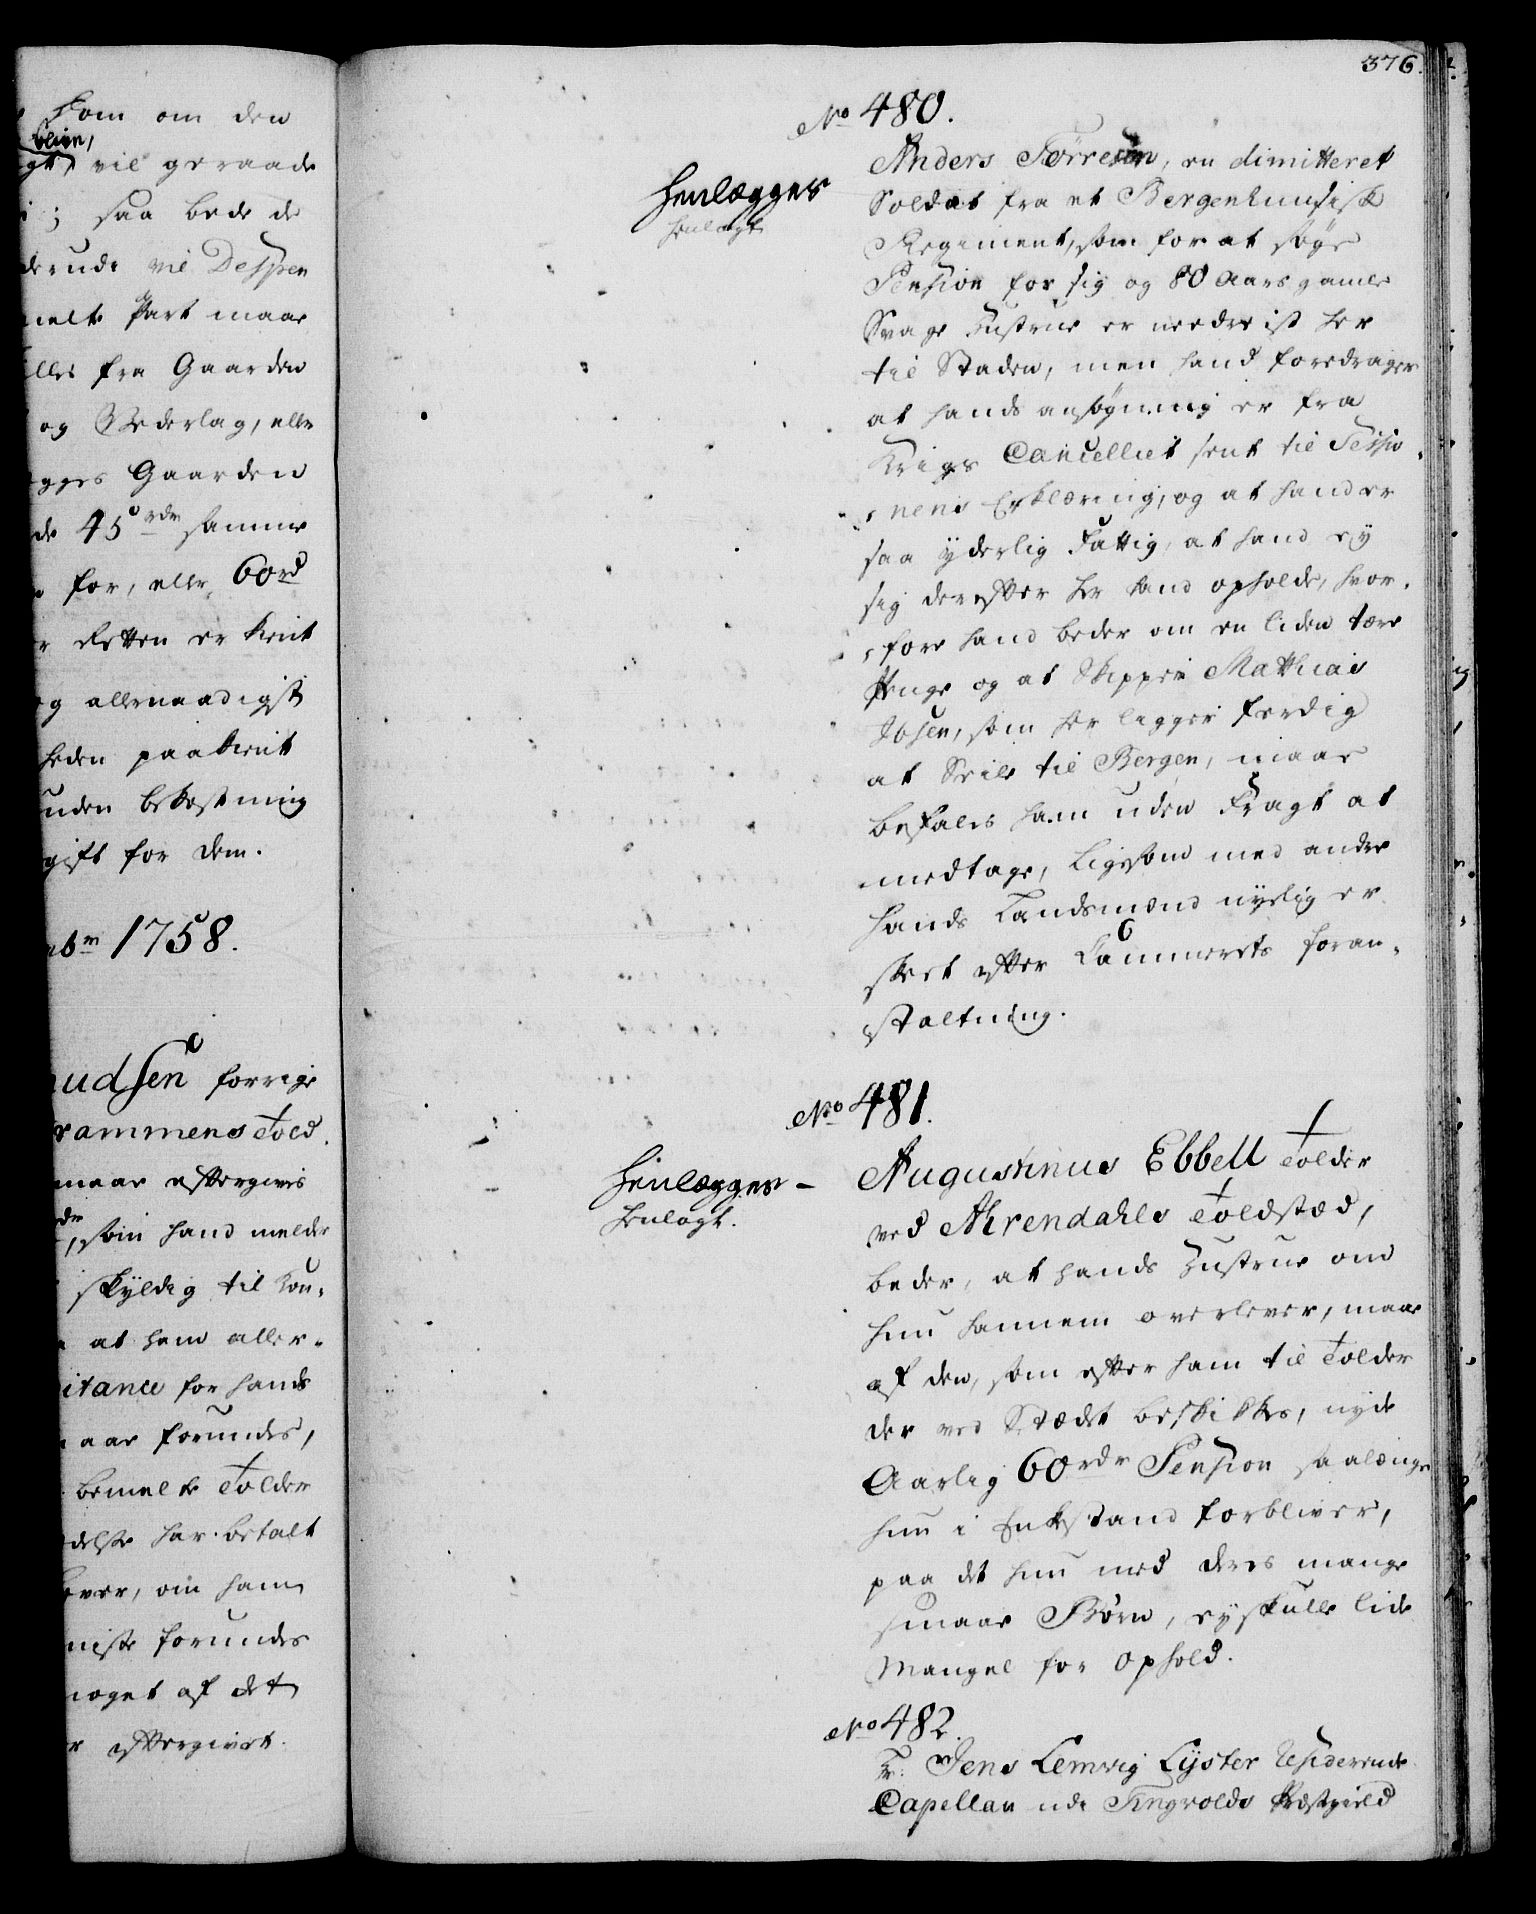 som om den
bliven,
vil geraade
; saa bede de
derude vil Dispen
melte Part maae
lles fra Gaarden
og Vederlag, eller
gges Gaarden
de 45 rdr samme
for, eller 60 rd
Retten er kient
og allernaadigst
heden paakient
uden bekostning
gift for dem.
br 1758.
udsen forrige
rammens Told
maae eftergives
rdr, som hand melder
skyldig til Kon-
at ham aller-
itance for hands
maae forundes,
bemelte Tolder
delse har betalt
over, om ham
niste forundes
noget af det
eftergivet.
376.
No 480.
Henlægges
henlagt
Anders Tørresen, en dimitteret
Soldat fra et Bergenhuusisk
Regiment, som for at søge
Pension for sig og 80 Aars gamle
Svage Hustrue er needreist her
til Staden, men hand foredrager
at hands ansøgning er fra
Krigs Cancelliet sent til Sessio-
nens Erklæring, og at hand er
saa yderlig Fattig, at hand ey
sig derefter her kand opholde, hvor-
fore hand beder om en liden tære
Penge og at Skipper Mathias
Ibsen, som her ligger ferdig
at Seile til Bergen, maae
befales ham uden Fragt at
medtage, Ligesom med andre
hands Landsmænd nyelig er
skeet efter Cammerets foran-
staltning.
No 481.
Henlægges -
henlagt.
Augustinus Ebbell Tolder
ved Ahrendahls Toldstæd,
beder, at hands Hustrue om
hun hannem overlever, maae
af den, som efter ham til Tolder
der ved Stædet beskikkes, nyde
Aarlig 60 rdr Pension saalænge
hun i Enkestand forbliver,
paa det hun med deres mange
smaae Børn, ey skulle lide
Mangel for Ophold.
No 482.
Hr. Jens Lemvig Lyster Residerende
Capellan udi Tingvolds Præstegield